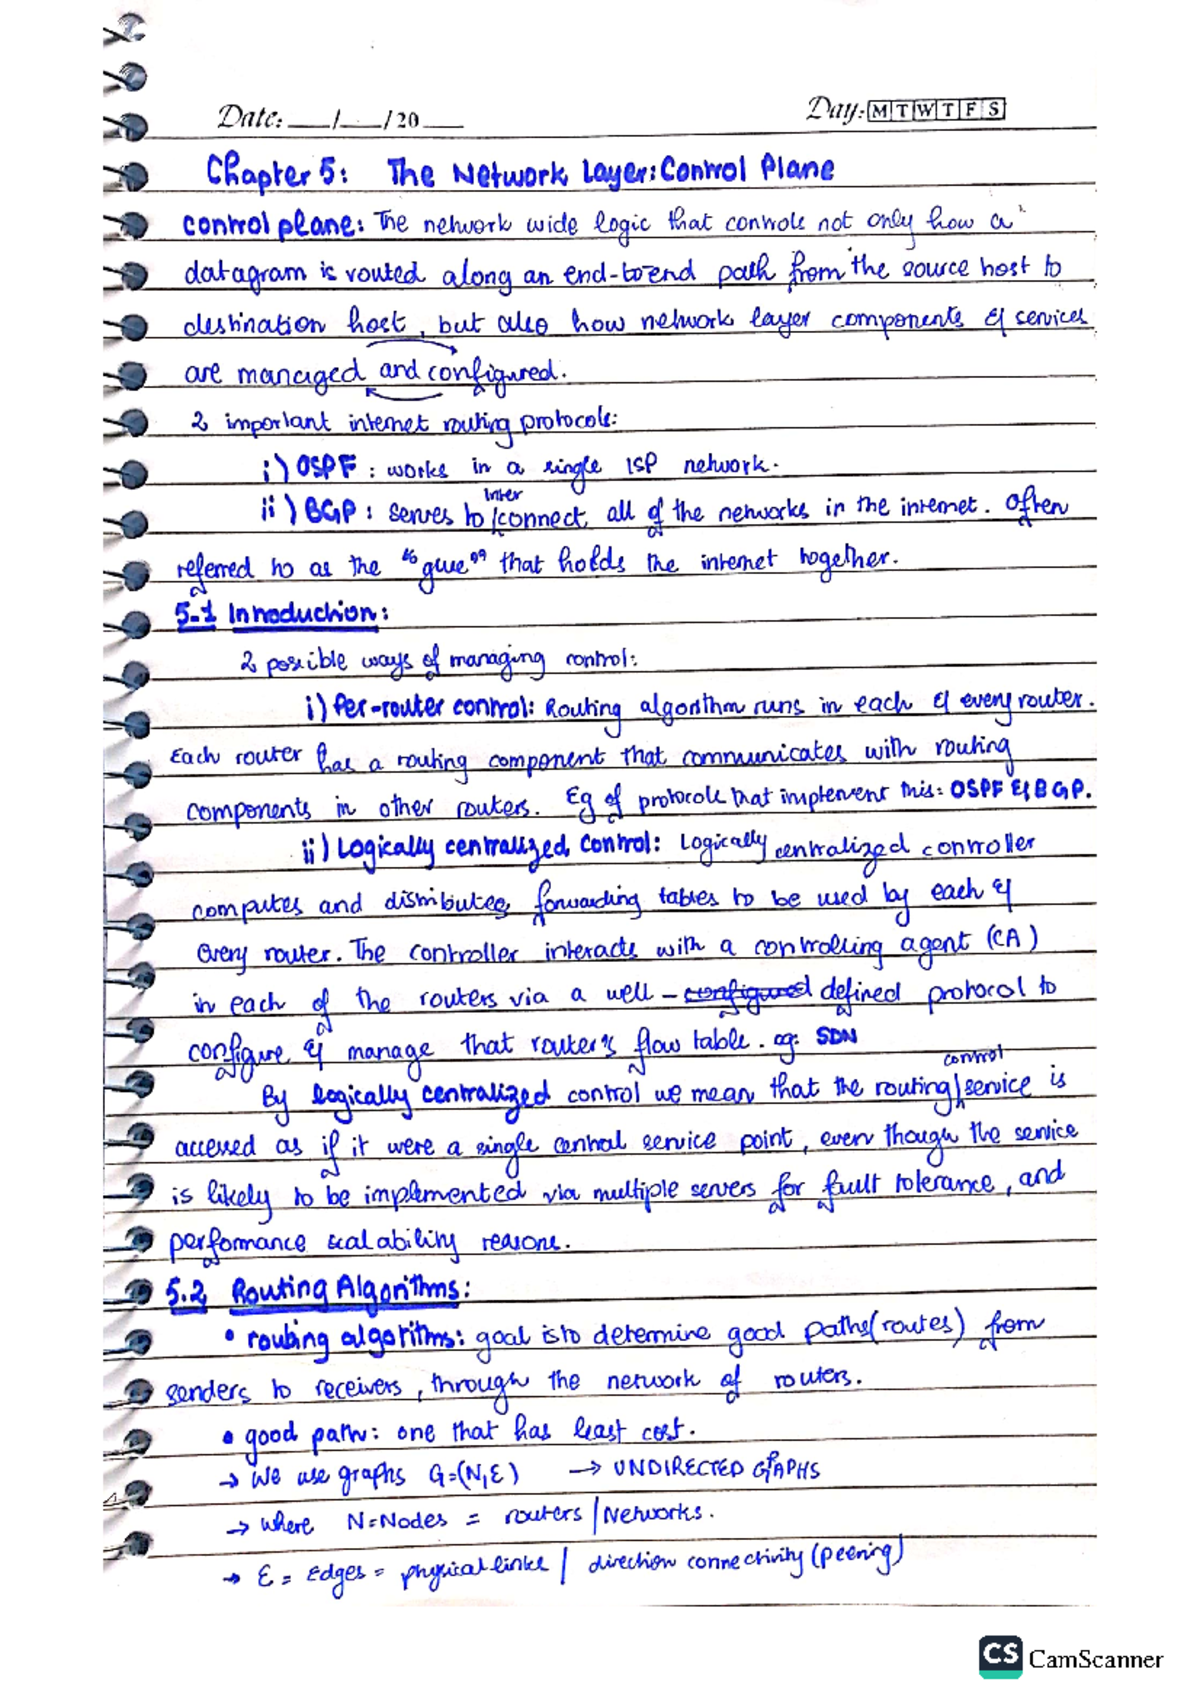 Date: ___/___/20___ Day: M T W T F S
Chapter 5: The Network Layer: Control Plane
control plane: The network wide logic that controls not only how a
datagram is routed along an end-to-end path from the source host to
destination host, but also how network layer components & services
are managed and configured.
2 important internet routing protocols:
i) OSPF : works in a single ISP network.
ii) BGP : serves to interconnect all of the networks in the internet. Often
referred to as the "glue" that holds the internet together.
5.1 Introduction:
2 possible ways of managing control:
i) Per-router control: Routing algorithm runs in each & every router.
Each router has a routing component that communicates with routing
components in other routers. Eg of protocols that implement this: OSPF & BGP.
ii) Logically centralized control: Logically centralized controller
computes and distributes forwarding tables to be used by each &
every router. The controller interacts with a controlling agent (CA)
in each of the routers via a well-configured defined protocol to
configure & manage that router's flow table. eg: SDN
By logically centralized control we mean that the routing control service is
accessed as if it were a single central service point, even though the service
is likely to be implemented via multiple servers for fault tolerance, and
performance scalability reasons.
5.2 Routing Algorithms:
• routing algorithms: goal is to determine good paths (routes) from
senders to receivers, through the network of routers.
• good path: one that has least cost.
→ We use graphs G=(N,E) → UNDIRECTED GRAPHS
→ where N=Nodes = routers / Networks.
→ E = Edges = physical links / direction connectivity (peering)
CS CamScanner